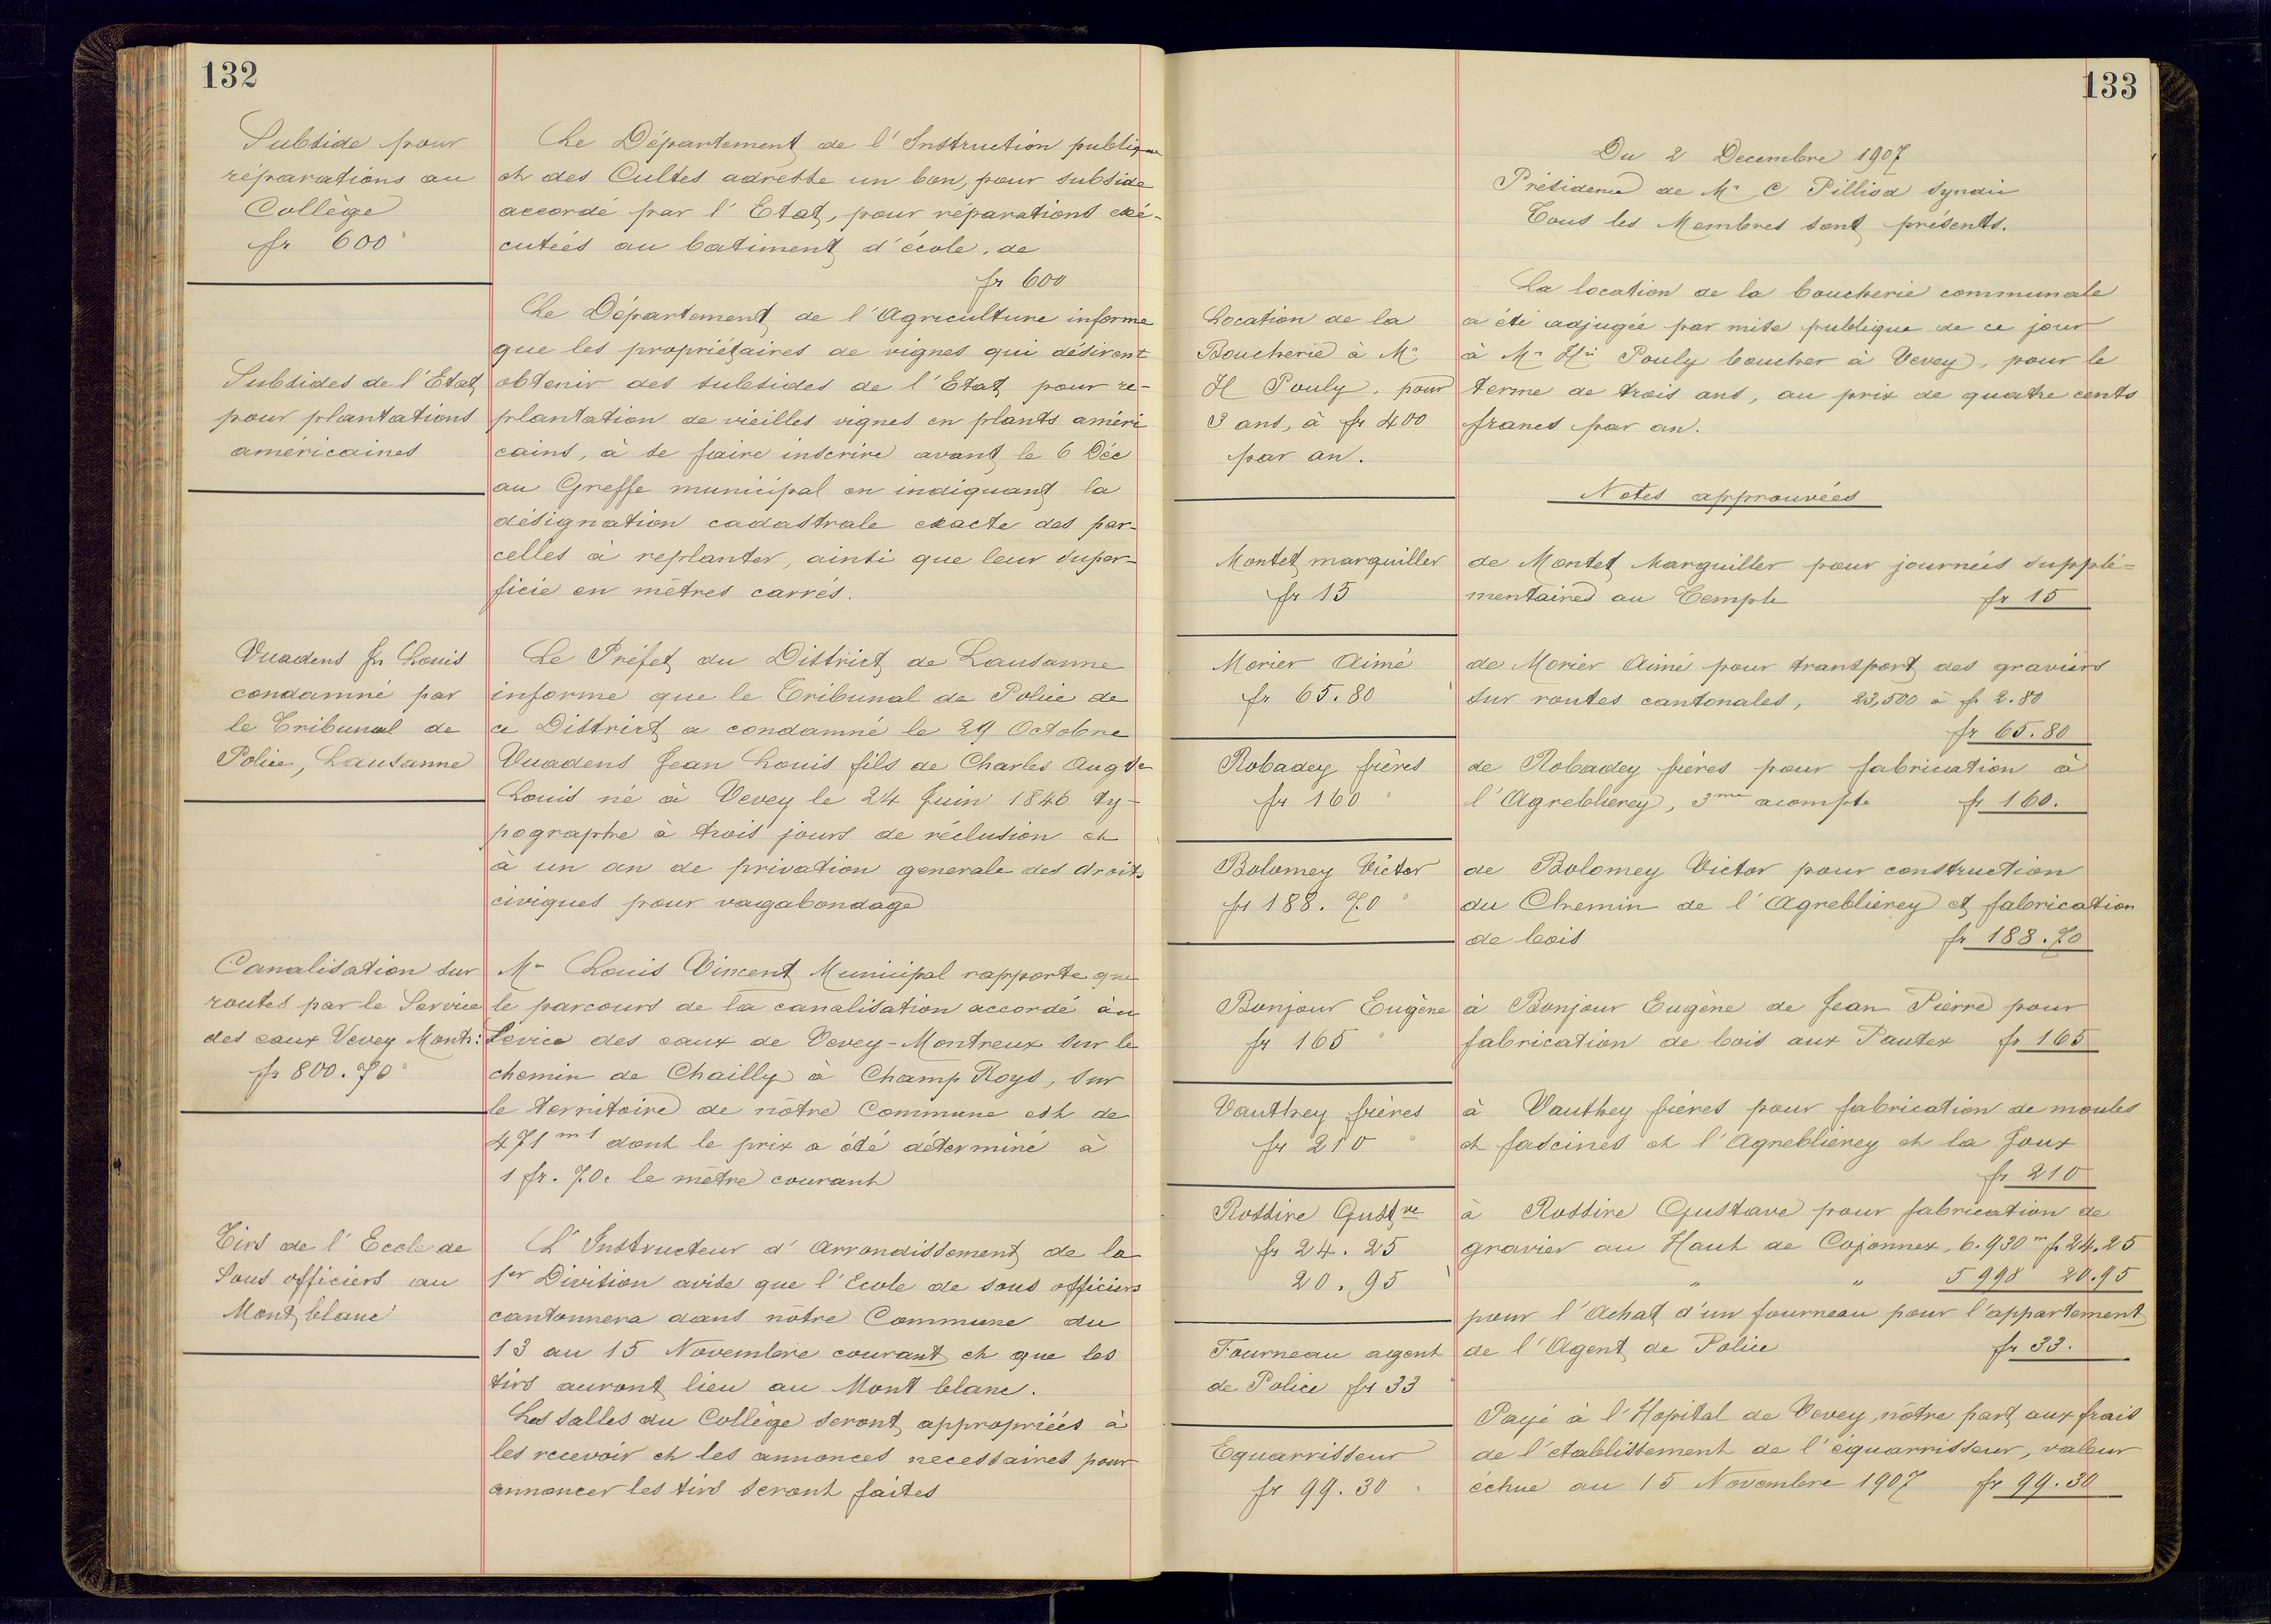 132
Subside pour
réparations au
Collège
fr 600
Le Département de l'Instruction publique
et des Cultes adresse un bon, pour subside
accordé par l'Etat, pour réparations exé-
cutées au batiment d'école, de
fr 600
Subsides de l'Etat
pour plantations
américaines
Le Département de l'Agriculture informe
que les propriétaires de vignes qui désirent
obtenir des subsides de l'Etat pour re-
plantation de vieilles vignes en plants améri
cains, à se faire inscrire avant le 6 Déc
au Greffe municipal en indiquant la
désignation cadastrale exacte des par-
celles à replanter, ainsi que leur super-
ficie en mètres carrés.
Vuadens Jn Louis
condamné par
le Tribunal de
Police, Lausanne
Le Préfet du District de Lausanne
informe que le Tribunal de Police de
ce District a condamné le 29 Octobre
Vuadens Jean Louis fils de Charles Augte
Louis né à Vevey le 24 Juin 1846 ty-
pographe à trois jours de réclusion et
à un an de privation generale des droits
civiques pour vagabondage
Canalisation sur
routes par le Service
des eaux Vevey Montr:
fr 800.70
Mr Louis Vincent Municipal rapporte que
le parcours de la canalisation accordé au
Sevice des eaux de Vevey-Montreux sur le
chemin de Chailly à Champ Roys, sur
le territoire de nôtre Commune est de
471 mt dont le prix a été déterminé à
1 fr. 70c le mètre courant
Tirs de l'Ecole de
Sous officiers au
Mont blanc
L'Instructeur d'Arrondissement de la
1er Division avise que l'Ecole de sous officiers
cantonnera dans nôtre Commune du
13 au 15 Novembre courant et que les
tirs auront lieu au Mont blanc.
Les salles du Collège seront appropriées à
les recevoir et les annonces necessaires pour
annoncer les tirs seront faites
133
Du 2 Decembre 1907
Présidence de Mr C Pilliod Syndic
Tous les Membres sont présents.
Location de la
Boucherie à Mr
H Pouly, pour
3 ans, à fr 400
par an.
La location de la boucherie communale
a été adjugée par mise publique de ce jour
à Mr Hri Pouly boucher à Vevey, pour le
terme de trois ans, au prix de quatre cents
francs par an.
Notes approuvées
Montet marguiller
fr 15
de Montet Marguiller pour journées supplé=
mentaires au Temple fr 15
Morier Aimé
fr 65.80
de Morier Aimé pour transport des graviers
sur routes cantonales, 23,500 à fr 2.80
fr 65.80
Robadey frères
fr 160
de Robadey frères pour fabrication à
l'Agreblierey, 3me acompte fr 160.
Bolomey Victor
fr 188.70
de Bolomey Victor pour construction
du Chemin de l'Agreblierey et fabrication
de bois fr 188.70
Bonjour Eugène
fr 165
à Bonjour Eugène de Jean Pierre pour
fabrication de bois aux Pautex fr 165
Vauthey frères
fr 210
à Vauthey frères pour fabrication de moules
et fascines et l'Agreblierey et la Joux
fr 210
Rossire Gustve
fr 24.25
20.95
à Rossire Gustave pour fabrication de
gravier au Haut de Cojonnex, 6.930 m fr 24.25
" " 5 998 20.95
Fourneau agent
de Police fr 33
pour l'Achat d'un fourneau pour l'appartement
de l'Agent de Police fr 33.
Equarrisseur
fr 99.30
Payé à l'Hopital de Vevey, nôtre part aux frais
de l'etablissement de l'équarrisseur, valeur
échue au 15 Novembre 1907 fr 99.30